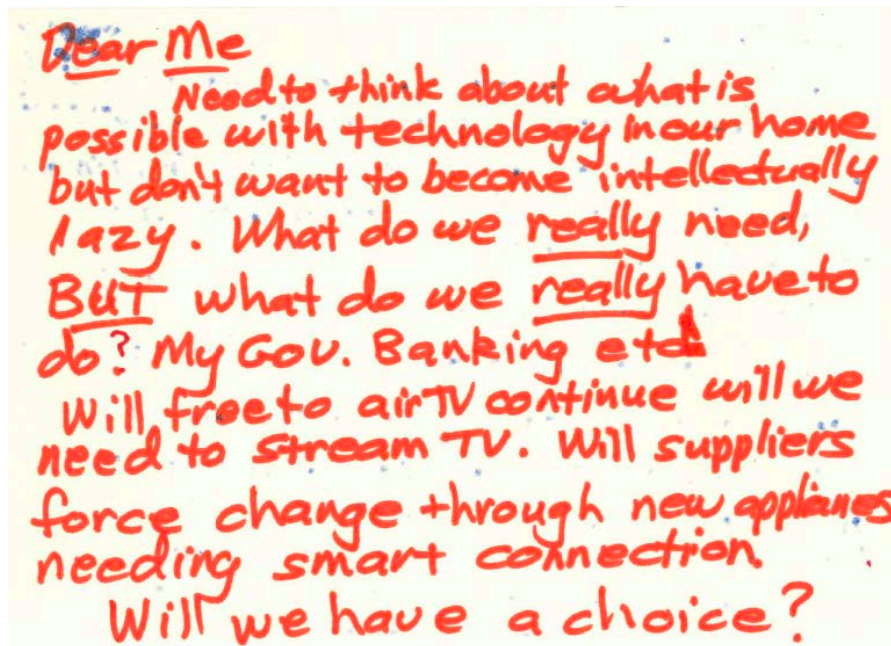 Dear Me
Need to think about what is
possible with technology in our home
but don't want to become intellectually
lazy. What do we really need,
BUT what do we really have to
do? My Gov. Banking etc
Will free to air TV continue will we
need to stream TV. Will suppliers
force change through new applianes
needing smart connection.
Will we have a choice?